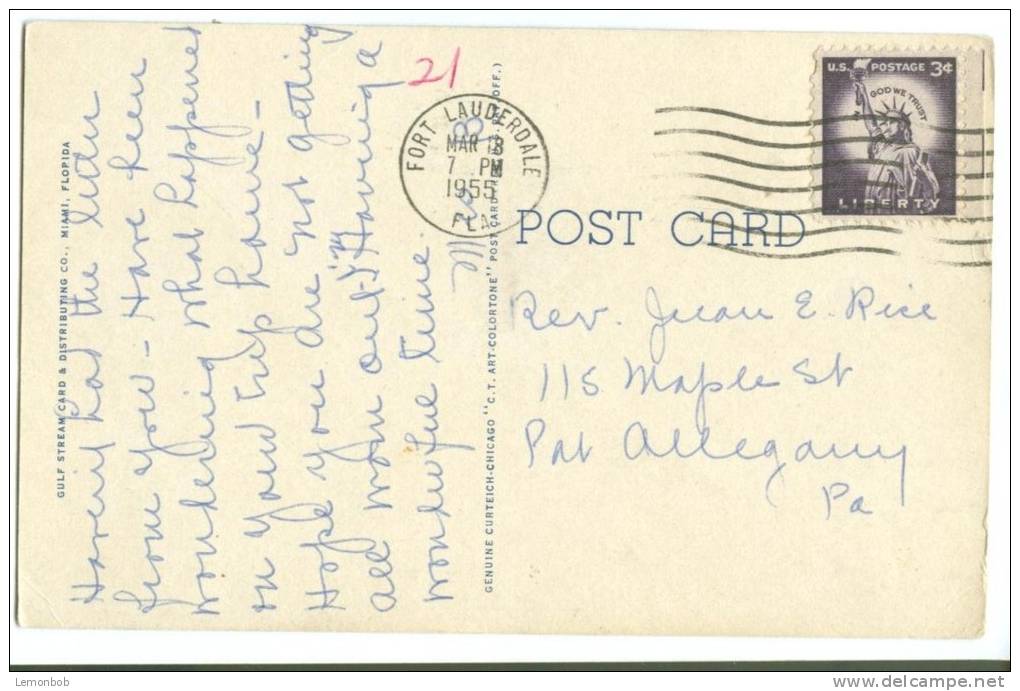 Haven't had the letter
from you - Have been
wondering what happened
on your trip home -
Hope you are not getting
all worn out. I'm Having a
wonderful time.
21
FORT LAUDERDALE
MAR 18
7 PM
1955
FLA
U.S. POSTAGE 3¢
IN GOD WE TRUST
LIBERTY
POST CARD
Rev. Juan E. Rice
115 Maple St
Port Allegany
Pa
GULF STREAM CARD & DISTRIBUTING CO., MIAMI, FLORIDA
GENUINE CURTEICH-CHICAGO "C.T. ART-COLORTONE" POST CARD OFF.)
Lemonbob
delcampe.net